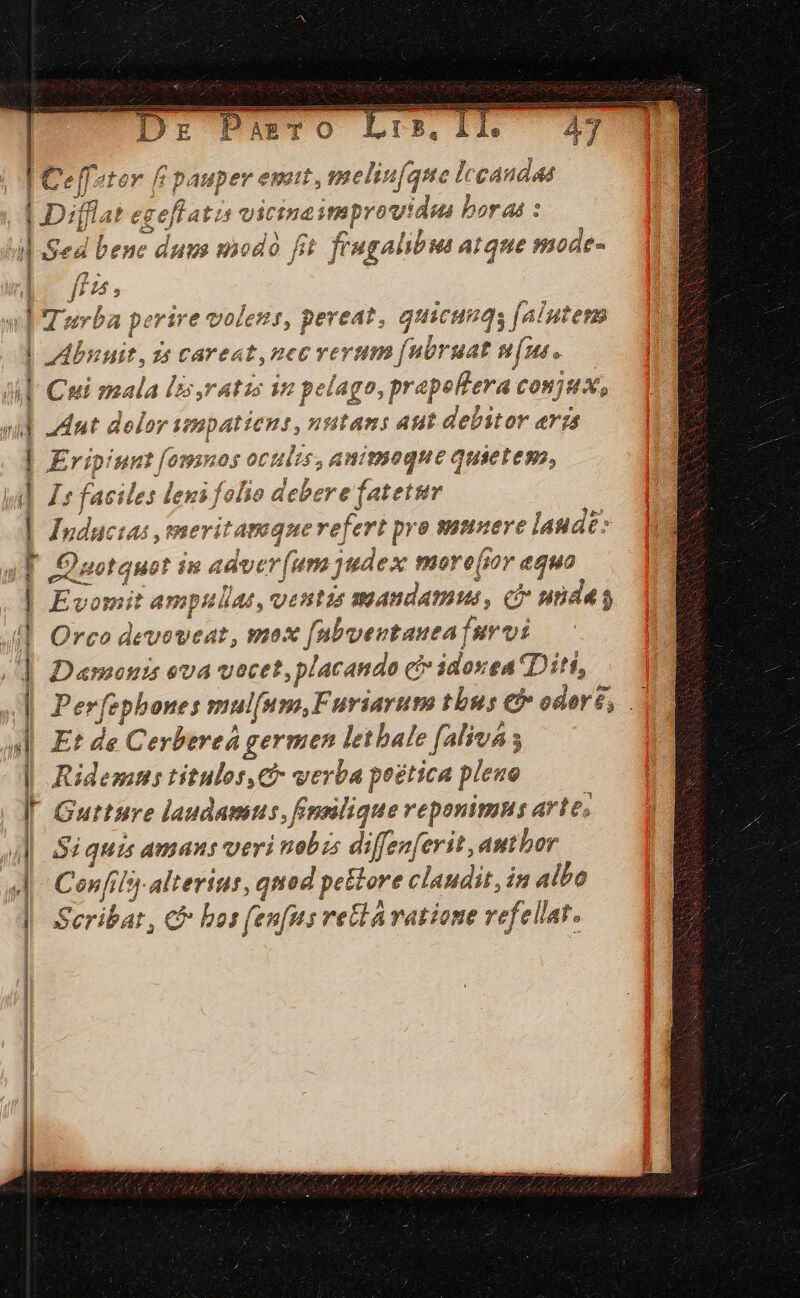 De Parto Lib. II. 47
Ceſſator ſi pauper emit, melinſque locandas
Difflat egeſtatis vicinæ improvidus horas :
Sed bene dum modò ſit frugalibus atque mode-
ſtis,
Turba perire volens, pereat, quicunqꝫ ſalutem
Abnuit, is careat, nec rerum ſubruat uſus.
Cui mala lis, ratis in pelago, præpoſtera conjux,
Aut dolor impatiens, nutans aut debitor æris
Eripiunt ſomnos oculis, animoque quietem,
Is faciles leni folio debere fatetur
Inducias, meritamque refert pro munere laudē:
Quotquot in adverſum judex moroſior æquo
Evomit ampullas, ventis mandamus, & undas
Orco devoveat, mox ſubventanea furvi
Dæmonis ova vocet, placando & idonea Diti,
Perſephones mulſum, Furiarum thus & odorē,
Et de Cerbereâ germen lethale ſalivâ;
Ridemus titulos, & verba poëtica pleno
Gutture laudamus, ſimilique reponimus arte.
Siquis amans veri nobis diſſenſerit, author
Conſilij alterius, quod pectore claudit, in albo
Scribat, & hos ſenſus rectâ ratione refellat.